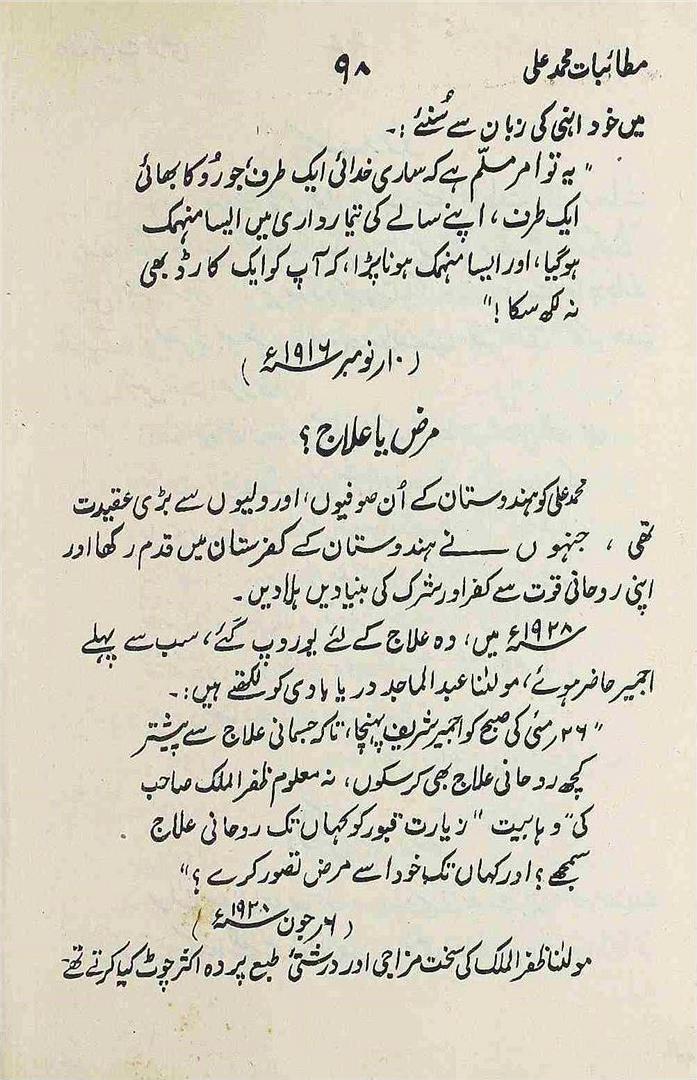 مطائبات محمد علی ۹۸
میں خود انہی کی زبان سے سُنئے :۔
" یہ تو امر مسلّم ہے کہ ساری خدائی ایک طرف، جورُو کا بھائی
ایک طرف، اپنے سالے کی تیمارداری میں ایسا منہمک
ہوگیا، اور ایسا منہمک ہونا پڑا، کہ آپ کو ایک کارڈ بھی
نہ لکھ سکا !"
(۱۰ر نومبر ۱۹۱۶ء)
مرض یا علاج ؟
محمد علی کو ہندوستان کے اُن صوفیوں، اور ولیوں سے بڑی عقیدت
تھی ، جنہوں نے ہندوستان کے کفرستان میں قدم رکھا اور
اپنی روحانی قوت سے کفر اور شرک کی بنیادیں ہلادیں۔
۱۹۲۸ء میں، وہ علاج کے لئے یوروپ گئے، سب سے پہلے
اجمیر حاضر ہوئے، مولٰنا عبد الماجد دریابادی کو لکھتے ہیں :۔
" ۲۶ر مئی کی صبح کو اجمیر شریف پہنچا، تاکہ جسمانی علاج سے پیشتر
کچھ روحانی علاج بھی کرسکوں، نہ معلوم ظفر الملک صاحب
کی "وہابیت" زیارت قبور کو کہاں تک روحانی علاج
سمجھے ؟ اور کہاں تک خود اسے مرض تصور کرے ؟"
(۶ر جون ۱۹۲۸ء)
مولٰنا ظفر الملک کی سخت مزاجی اور درشتیٔ طبع پر وہ اکثر چوٹ کیا کرتے تھے